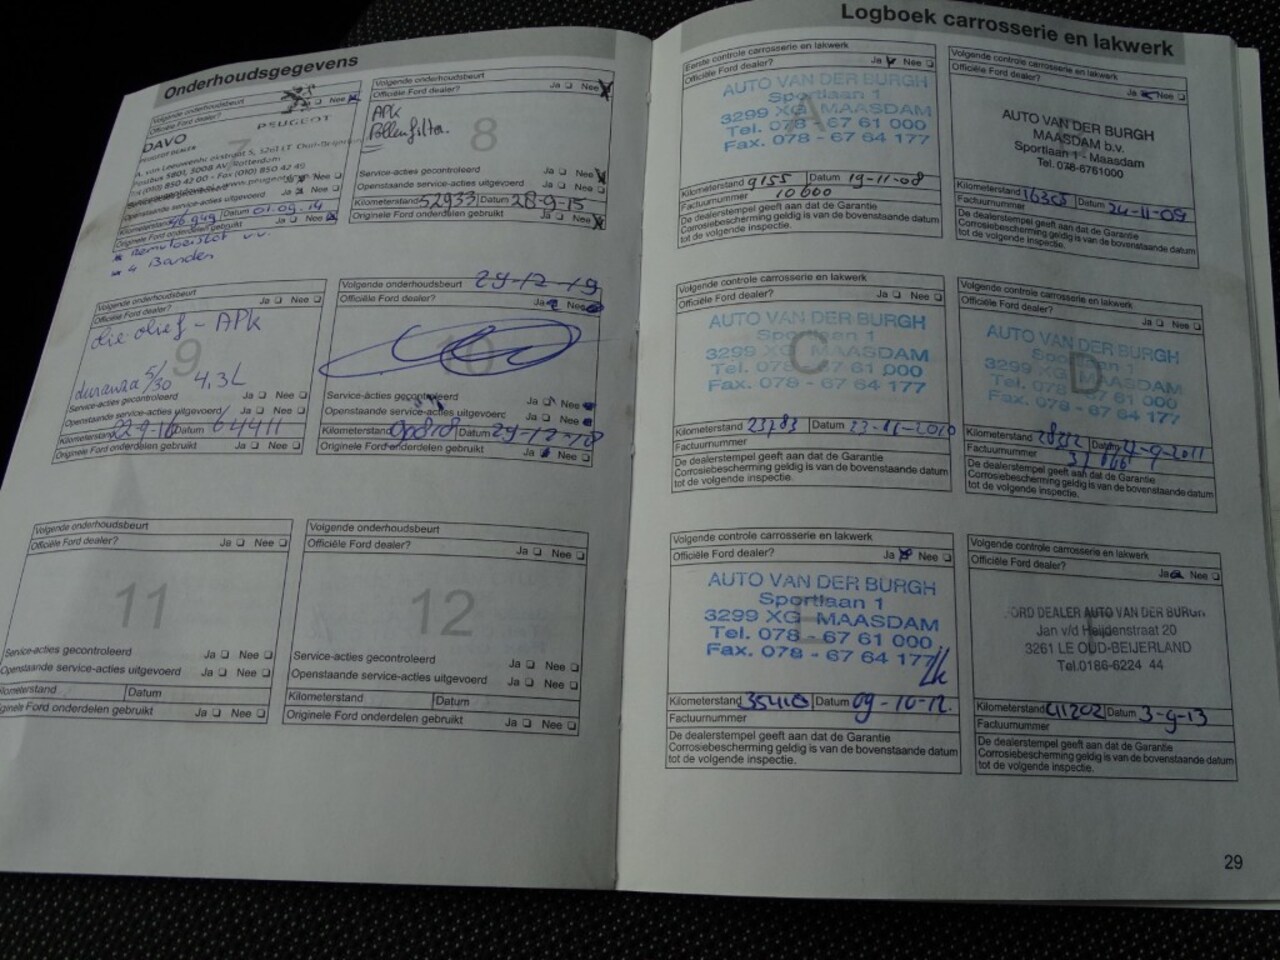 Onderhoudsgegevens
Volgende onderhoudsbeurt
Officiële Ford dealer? Ja Nee
7
DAVO PEUGEOT
PEUGEOT DEALER
A. van Leeuwenhoekstraat 5, 3261 LT Oud-Beijerland
Postbus 5801, 3008 AV Rotterdam
Tel (010) 850 42 00 - Fax (010) 850 42 49
Service-acties gecontroleerd Ja Nee
Openstaande service-acties uitgevoerd Ja Nee
Kilometerstand 46949 Datum 01.09.14
Originele Ford onderdelen gebruikt Ja Nee
4 Banden
Volgende onderhoudsbeurt
Officiële Ford dealer? Ja Nee
APK
8
Service-acties gecontroleerd Ja Nee
Openstaande service-acties uitgevoerd Ja Nee
Kilometerstand 52933 Datum 28-9-15
Originele Ford onderdelen gebruikt Ja Nee
Volgende onderhoudsbeurt
Officiële Ford dealer? Ja Nee
olie olief - APK
9
5/30 4,3L
Service-acties gecontroleerd Ja Nee
Openstaande service-acties uitgevoerd Ja Nee
Kilometerstand 22-9-16 Datum 64411
Originele Ford onderdelen gebruikt Ja Nee
Volgende onderhoudsbeurt 29-12-19
Officiële Ford dealer? Ja Nee
10
Service-acties gecontroleerd Ja Nee
Openstaande service-acties uitgevoerd Ja Nee
Kilometerstand Datum 29-12-18
Originele Ford onderdelen gebruikt Ja Nee
Volgende onderhoudsbeurt
Officiële Ford dealer? Ja Nee
11
Service-acties gecontroleerd Ja Nee
Openstaande service-acties uitgevoerd Ja Nee
Kilometerstand Datum
Originele Ford onderdelen gebruikt Ja Nee
Volgende onderhoudsbeurt
Officiële Ford dealer? Ja Nee
12
Service-acties gecontroleerd Ja Nee
Openstaande service-acties uitgevoerd Ja Nee
Kilometerstand Datum
Originele Ford onderdelen gebruikt Ja Nee
Logboek carrosserie en lakwerk
Eerste controle carrosserie en lakwerk
Officiële Ford dealer? Ja Nee
A
AUTO VAN DER BURGH
Sportlaan 1
3299 XG MAASDAM
Tel. 078 - 67 61 000
Fax. 078 - 67 64 177
Kilometerstand 9155 Datum 19-11-08
Factuurnummer 10600
De dealerstempel geeft aan dat de Garantie
Corrosiebescherming geldig is van bovenstaande datum
tot de volgende inspectie.
Volgende controle carrosserie en lakwerk
Officiële Ford dealer? Ja Nee
AUTO VAN DER BURGH
MAASDAM b.v.
Sportlaan 1 - Maasdam
Tel. 078-6761000
Kilometerstand 16305 Datum 24-11-09
Factuurnummer
De dealerstempel geeft aan dat de Garantie
Corrosiebescherming geldig is van bovenstaande datum
tot de volgende inspectie.
Volgende controle carrosserie en lakwerk
Officiële Ford dealer? Ja Nee
C
AUTO VAN DER BURGH
Sportlaan 1
3299 XG MAASDAM
Tel. 078 - 67 61 000
Fax. 078 - 67 64 177
Kilometerstand 23783 Datum 23-11-2010
Factuurnummer
De dealerstempel geeft aan dat de Garantie
Corrosiebescherming geldig is van bovenstaande datum
tot de volgende inspectie.
Volgende controle carrosserie en lakwerk
Officiële Ford dealer? Ja Nee
D
AUTO VAN DER BURGH
Sportlaan 1
3299 XG MAASDAM
Tel. 078 - 67 61 000
Fax. 078 - 67 64 177
Kilometerstand 28212 Datum
Factuurnummer
De dealerstempel geeft aan dat de Garantie
Corrosiebescherming geldig is van bovenstaande datum
tot de volgende inspectie.
Volgende controle carrosserie en lakwerk
Officiële Ford dealer? Ja Nee
E
AUTO VAN DER BURGH
Sportlaan 1
3299 XG MAASDAM
Tel. 078 - 67 61 000
Fax. 078 - 67 64 177
Kilometerstand 35418 Datum 09-10-12
Factuurnummer
De dealerstempel geeft aan dat de Garantie
Corrosiebescherming geldig is van bovenstaande datum
tot de volgende inspectie.
Volgende controle carrosserie en lakwerk
Officiële Ford dealer? Ja Nee
FORD DEALER AUTO VAN DER BURGH
Jan v/d Heijdenstraat 20
3261 LE OUD-BEIJERLAND
Tel.0186-6224 44
Kilometerstand 41202 Datum 3-9-13
Factuurnummer
De dealerstempel geeft aan dat de Garantie
Corrosiebescherming geldig is van bovenstaande datum
tot de volgende inspectie.
29